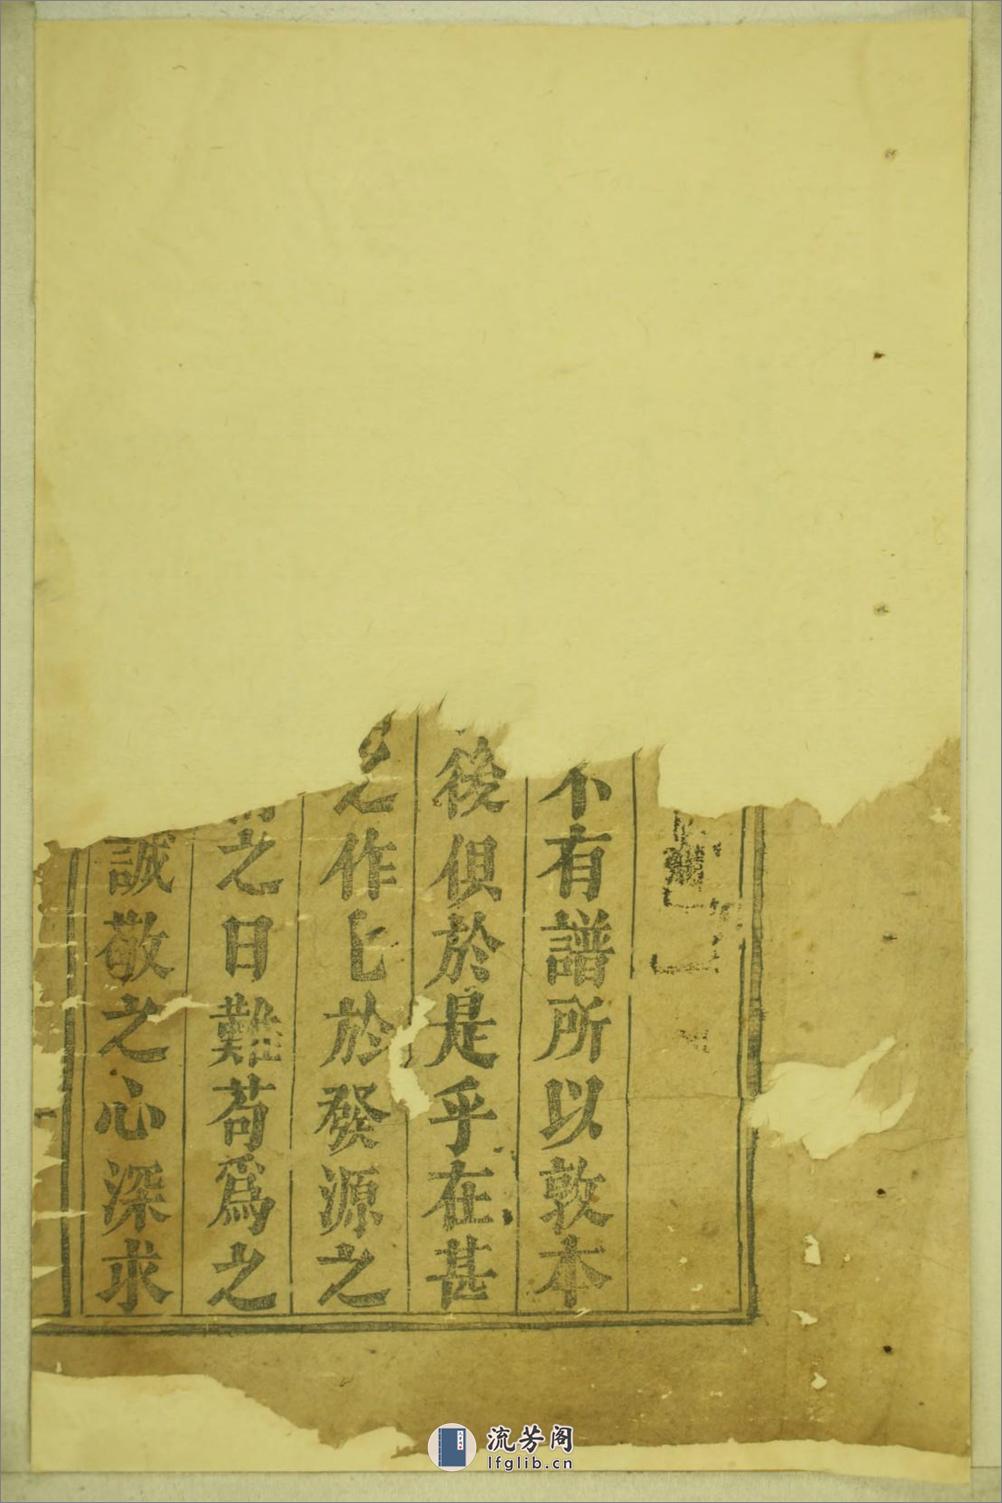 不有譜所以敦本
後俱於是乎在甚
之作匕於發源之
之日難苟爲之
誠敬之心深求
流芳阁
lfglib.cn